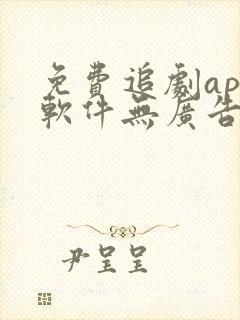 免費追劇ap
軟件無廣告
尹呈呈